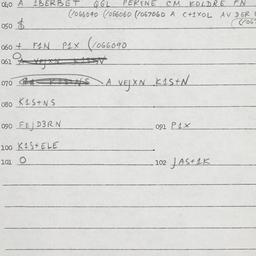 040 A IBERBET QGL PERENE CM KOLDRE FN
(/066040 (/066060 (/067060 A C+IXOL AV DER
050 $
060 + FIN PIX (/066090
061
070 A VEJXN KIS+N
080 KIS+NS
090 FEJD3RN 091 PIX
100 KIS+ELE
101 O 102 JAS+IK